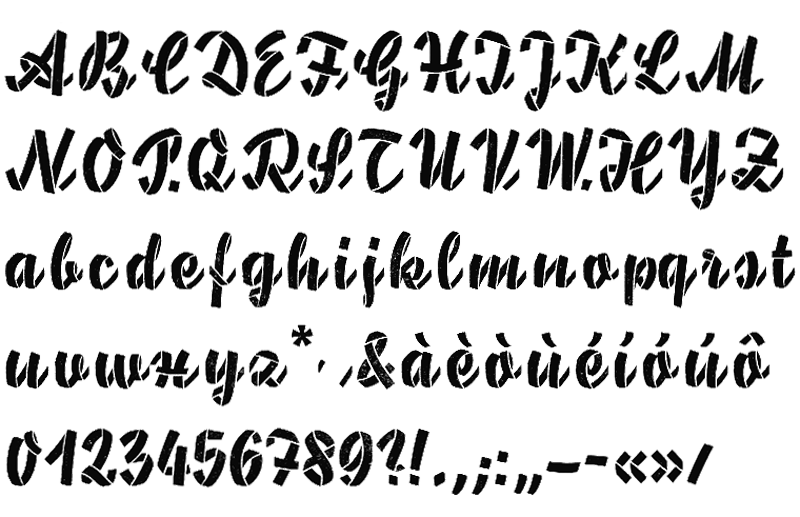 ABCDEFGHIJKLM
NOPQRSTUVWXYZ
abcdefghijklmnopqrst
uvwxyz*, ,&àèòùéíóúô
0123456789?!.,;:„—-«»/